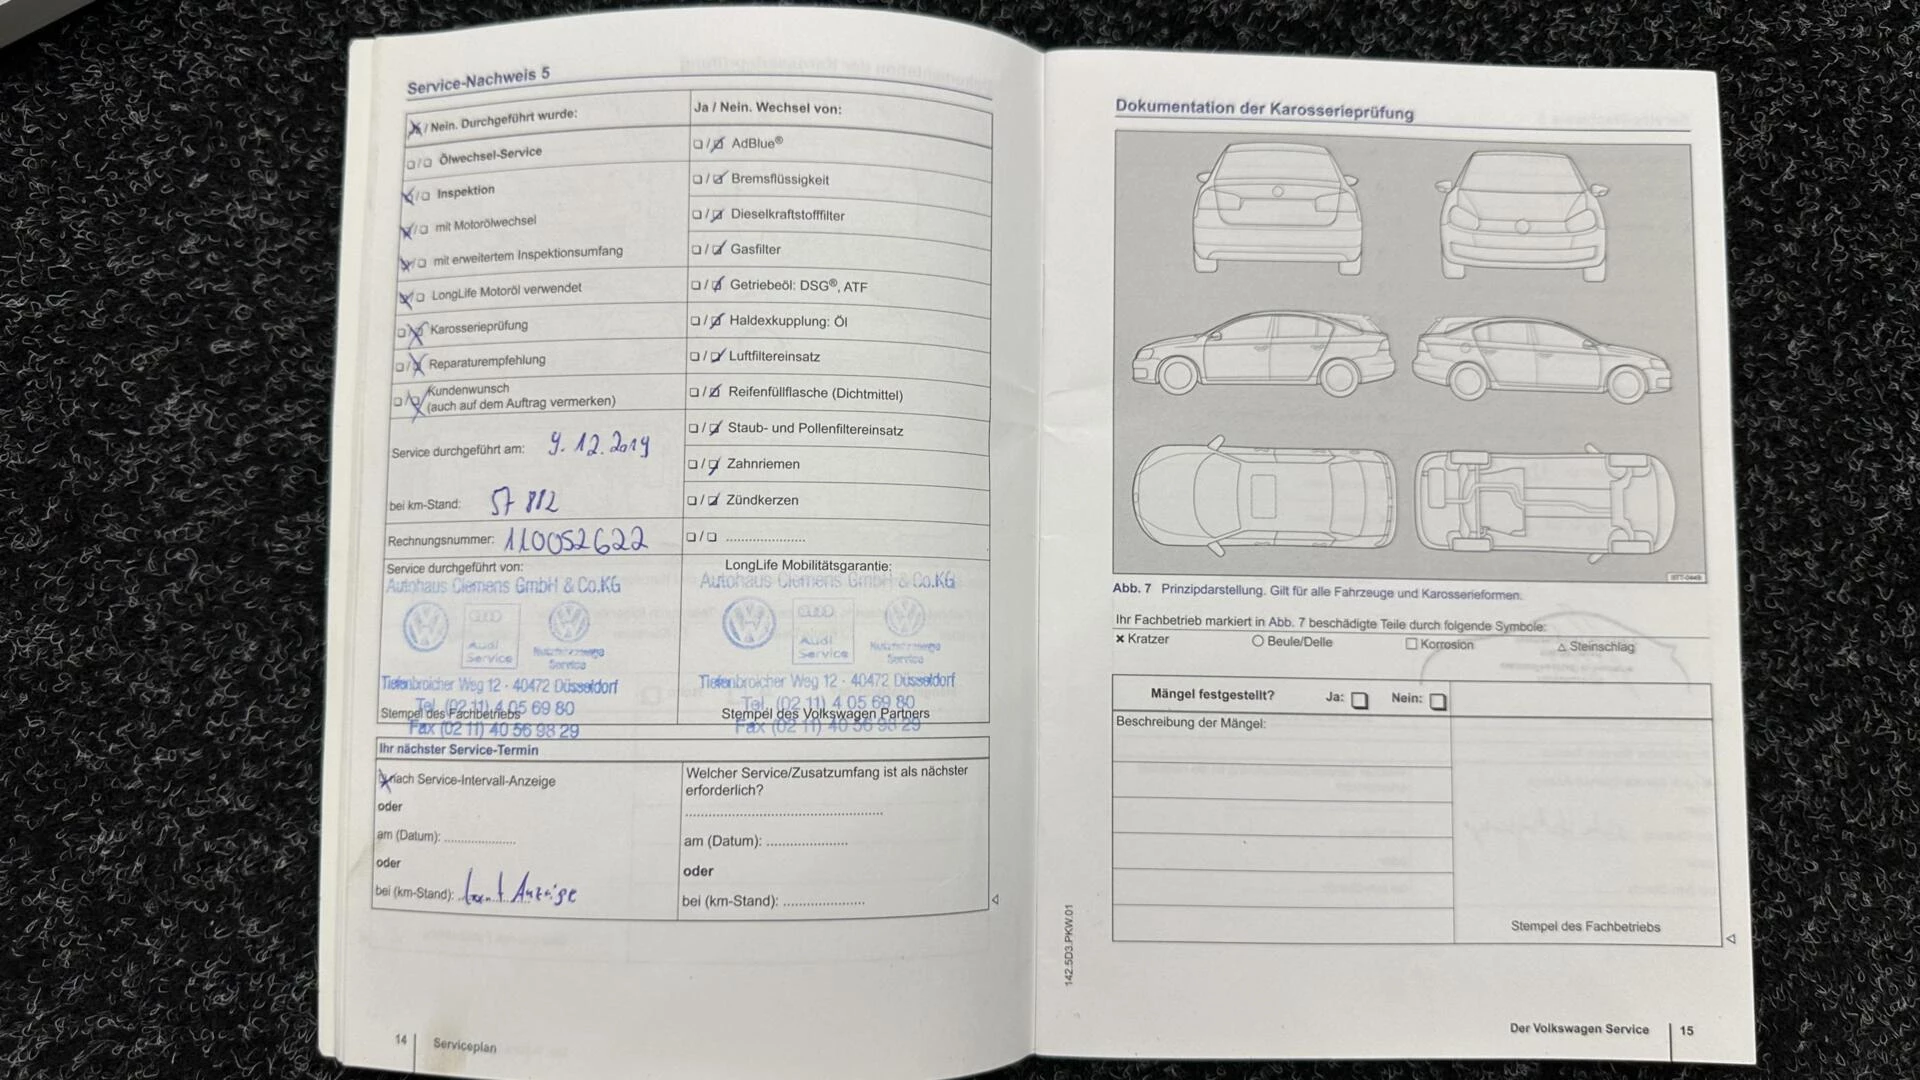 Service-Nachweis 5
Ja / Nein. Durchgeführt wurde:
Ölwechsel-Service
Inspektion
mit Motorölwechsel
mit erweitertem Inspektionsumfang
LongLife Motoröl verwendet
Karosserieprüfung
Reparaturempfehlung
Kundenwunsch
(auch auf dem Auftrag vermerken)
Service durchgeführt am: 9.12.2019
bei km-Stand: 57 812
Rechnungsnummer: 110052622
Service durchgeführt von:
Autohaus Clemens GmbH & Co.KG
Audi
Service
Nutzfahrzeuge
Service
Tiefenbroicher Weg 12 · 40472 Düsseldorf
Tel. (02 11) 4 05 69 80
Stempel des Fachbetriebs
Fax (02 11) 40 56 98 29
Ja / Nein. Wechsel von:
AdBlue®
Bremsflüssigkeit
Dieselkraftstofffilter
Gasfilter
Getriebeöl: DSG®, ATF
Haldexkupplung: Öl
Luftfiltereinsatz
Reifenfüllflasche (Dichtmittel)
Staub- und Pollenfiltereinsatz
Zahnriemen
Zündkerzen
/ .....................
LongLife Mobilitätsgarantie:
Autohaus Clemens GmbH & Co.KG
Audi
Service
Nutzfahrzeuge
Service
Tiefenbroicher Weg 12 · 40472 Düsseldorf
Tel. (02 11) 4 05 69 80
Stempel des Volkswagen Partners
Fax (02 11) 40 56 98 29
Ihr nächster Service-Termin
nach Service-Intervall-Anzeige
oder
am (Datum): ...................
oder
bei (km-Stand): laut Anzeige
Welcher Service/Zusatzumfang ist als nächster
erforderlich?
am (Datum): .....................
oder
bei (km-Stand): .....................
14
Serviceplan
Dokumentation der Karosserieprüfung
Abb. 7 Prinzipdarstellung. Gilt für alle Fahrzeuge und Karosserieformen.
Ihr Fachbetrieb markiert in Abb. 7 beschädigte Teile durch folgende Symbole:
× Kratzer ○ Beule/Delle □ Korrosion △ Steinschlag
Mängel festgestellt? Ja: □ Nein: □
Beschreibung der Mängel:
Stempel des Fachbetriebs
142.5D3.PKW.01
Der Volkswagen Service 15